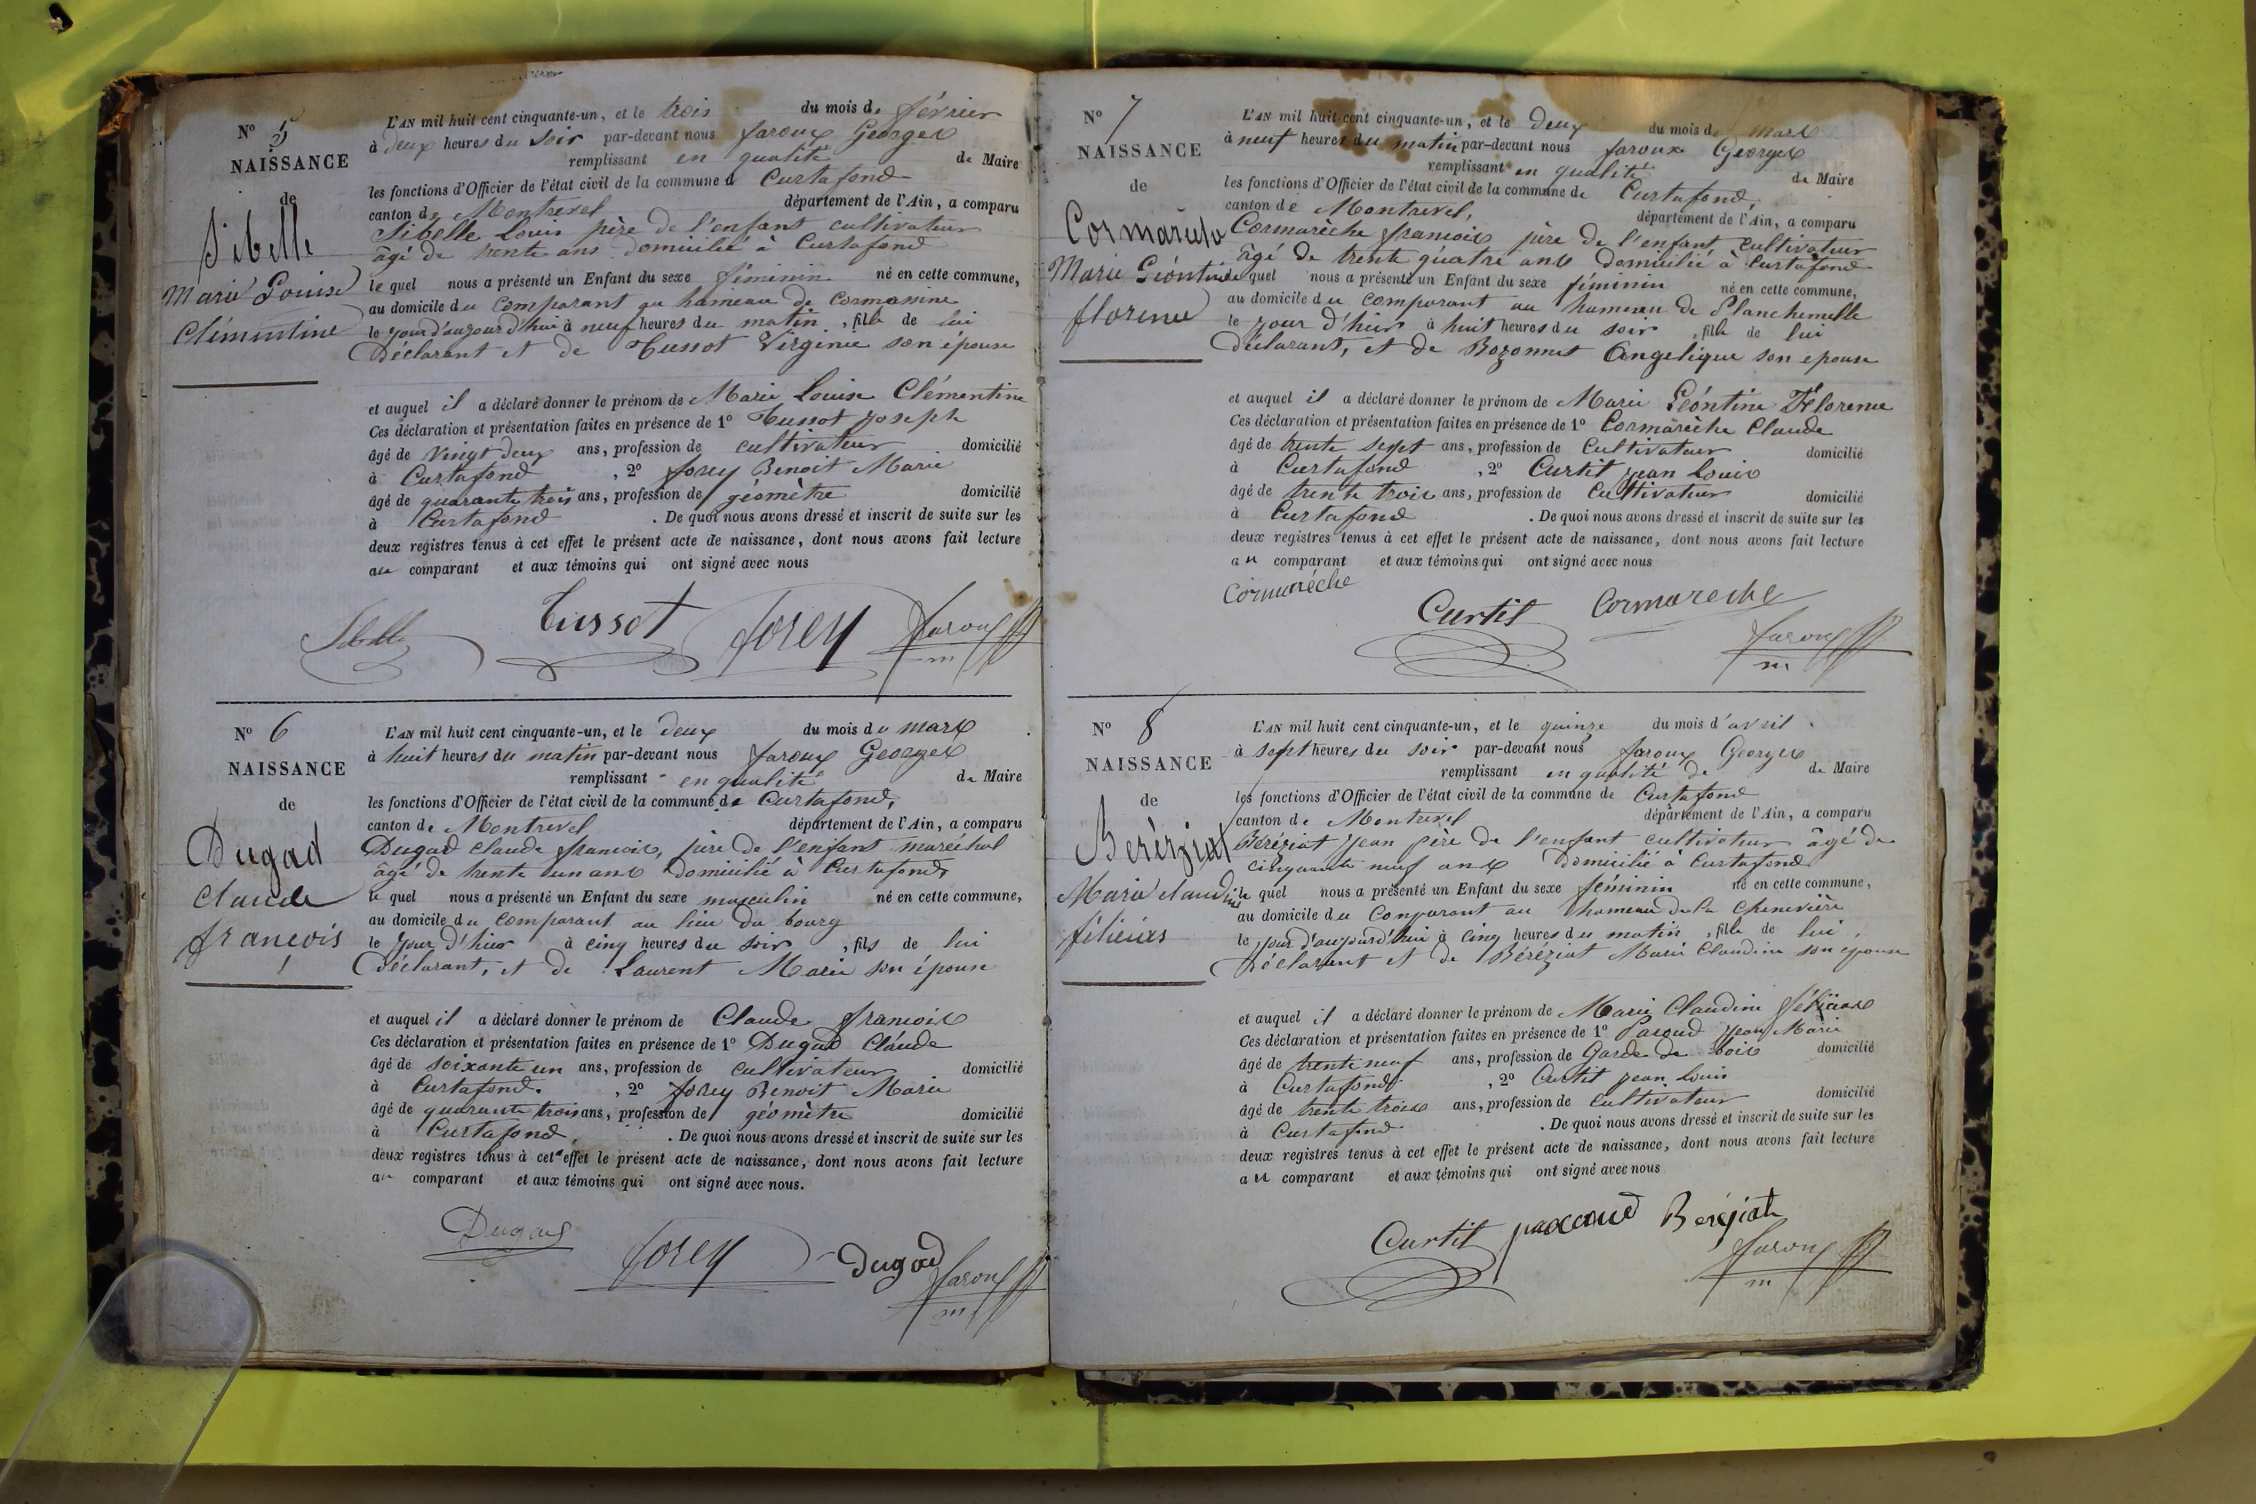 N° 5
NAISSANCE
de
Sibelle
Marie Louise
Clémentine
L'AN mil huit cent cinquante-un, et le trois du mois de février
à deux heures du soir par-devant nous faroux Georges
remplissant en qualité de Maire
les fonctions d'Officier de l'état civil de la commune d Curtafond
canton de Montrevel département de l'Ain, a comparu
Sibelle Louis père de l'enfant cultivateur
âgé de trente ans domicilié à Curtafond
le quel nous a présenté un Enfant du sexe féminin né en cette commune,
au domicile du comparant au hameau de Cormassine
le jour d'aujourd'hui à neuf heures du matin, fille de lui
Déclarant et de Tussot Virginie son épouse
et auquel il a déclaré donner le prénom de Marie Louise Clémentine
Ces déclaration et présentation faites en présence de 1° Tussot joseph
âgé de vingt deux ans, profession de cultivateur domicilié
à Curtafond, 2° forey Benoit Marie
âgé de quarante trois ans, profession de géomètre domicilié
à Curtafond. De quoi nous avons dressé et inscrit de suite sur les
deux registres tenus à cet effet le présent acte de naissance, dont nous avons fait lecture
au comparant et aux témoins qui ont signé avec nous
Sibelle Tussot forey faroux
m
N° 6
NAISSANCE
de
Dugad
Claude
françois
L'AN mil huit cent cinquante-un, et le deux du mois de mars
à huit heures du matin par-devant nous faroux Georges
remplissant en qualité de Maire
les fonctions d'Officier de l'état civil de la commune de Curtafond,
canton de Montrevel département de l'Ain, a comparu
Dugad claude françois, père de l'enfant maréchal
âgé de trente un ans domicilié à Curtafond,
le quel nous a présenté un Enfant du sexe masculin né en cette commune,
au domicile du comparant au lieu du bourg
le jour d'hier à cinq heures du soir, fils de lui
Déclarant, et de Laurent Marie son épouse
et auquel il a déclaré donner le prénom de Claude françois
Ces déclaration et présentation faites en présence de 1° Dugad Claude
âgé de soixante un ans, profession de cultivateur domicilié
à Curtafond., 2° forey Benoit Marie
âgé de quarante trois ans, profession de géomètre domicilié
à Curtafond. De quoi nous avons dressé et inscrit de suite sur les
deux registres tenus à cet effet le présent acte de naissance, dont nous avons fait lecture
au comparant et aux témoins qui ont signé avec nous.
Dugad forey dugad faroux
m
N° 7
NAISSANCE
de
Cormarèche
Marie Léontine
florence
L'AN mil huit cent cinquante-un, et le deux du mois de mars
à neuf heures du matin par-devant nous faroux Georges
remplissant en qualité de Maire
les fonctions d'Officier de l'état civil de la commune de Curtafond,
canton de Montrevel, département de l'Ain, a comparu
Cormarèche françois père de l'enfant cultivateur
âgé de trente quatre ans domicilié à Curtafond
le quel nous a présenté un Enfant du sexe féminin né en cette commune,
au domicile du comparant au hameau de Planchemelle
le jour d'hier à huit heures du soir, fille de lui
Déclarant, et de Bozonnet Angelique son epouse
et auquel il a déclaré donner le prénom de Marie Léontine Florence
Ces déclaration et présentation faites en présence de 1° Cormarèche Claude
âgé de trente sept ans, profession de Cultivateur domicilié
à Curtafond, 2° Curtit jean Louis
âgé de trente trois ans, profession de Cultivateur domicilié
à Curtafond. De quoi nous avons dressé et inscrit de suite sur les
deux registres tenus à cet effet le présent acte de naissance, dont nous avons fait lecture
au comparant et aux témoins qui ont signé avec nous
Cormarèche
Curtit Cormareche faroux
m
N° 8
NAISSANCE
de
Berèziat
Marie claudine
L'AN mil huit cent cinquante-un, et le quinze du mois d'avril.
à sept heures du soir par-devant nous faroux Georges
remplissant en qualité de de Maire
les fonctions d'Officier de l'état civil de la commune de Curtafond
canton de Montrevel département de l'Ain, a comparu
Béréziat jean père de l'enfant cultivateur âgé de
cinquante neuf ans domicilié à Curtafond
le quel nous a présenté un Enfant du sexe féminin né en cette commune,
au domicile du Comparant au hameau de la Chenevière
le jour d'aujourd'hui à cinq heures du matin, fille de lui,
Déclarant et de Béréziat Marie Claudine son epouse
et auquel il a déclaré donner le prénom de Marie Claudine
Ces déclaration et présentation faites en présence de 1° Pacoud jean Marie
âgé de trente neuf ans, profession de Garde de bois domicilié
à Curtafond, 2° Curtit jean Louis
âgé de trente trois ans, profession de Cultivateur domicilié
à Curtafond. De quoi nous avons dressé et inscrit de suite sur les
deux registres tenus à cet effet le présent acte de naissance, dont nous avons fait lecture
au comparant et aux témoins qui ont signé avec nous
Curtit Beréziat
faroux
m